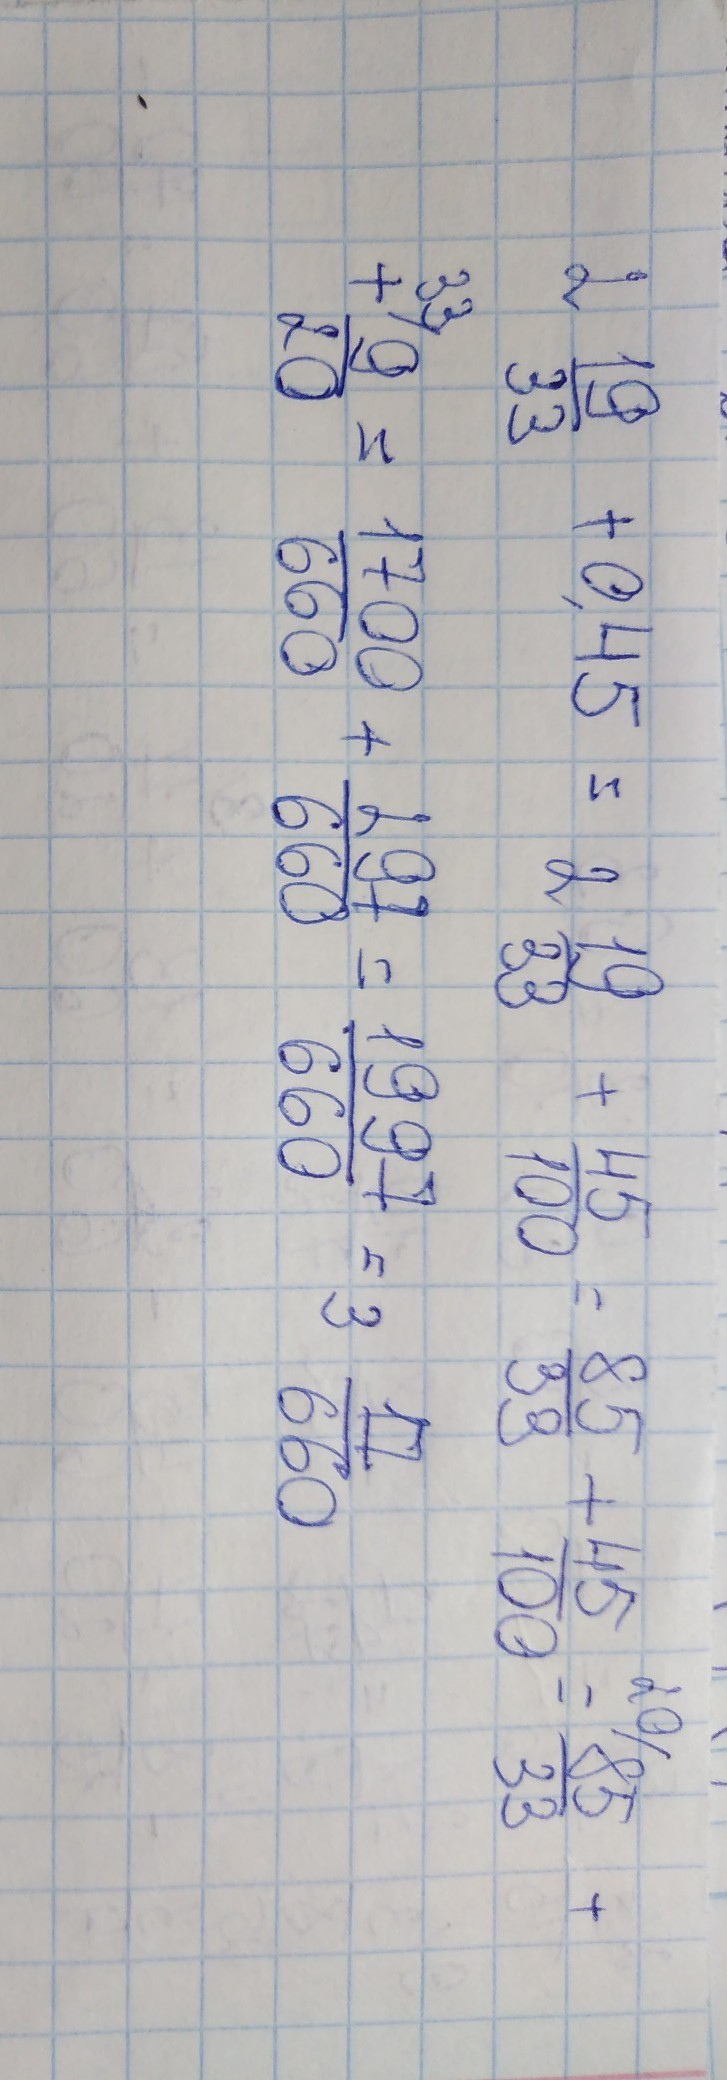 2 19/33 + 0,45 = 2 19/33 + 45/100 = 85/33 + 45/100 = 20/ 85/33 +
+ 33/ 9/20 = 1700/660 + 297/660 = 1997/660 = 3 17/660